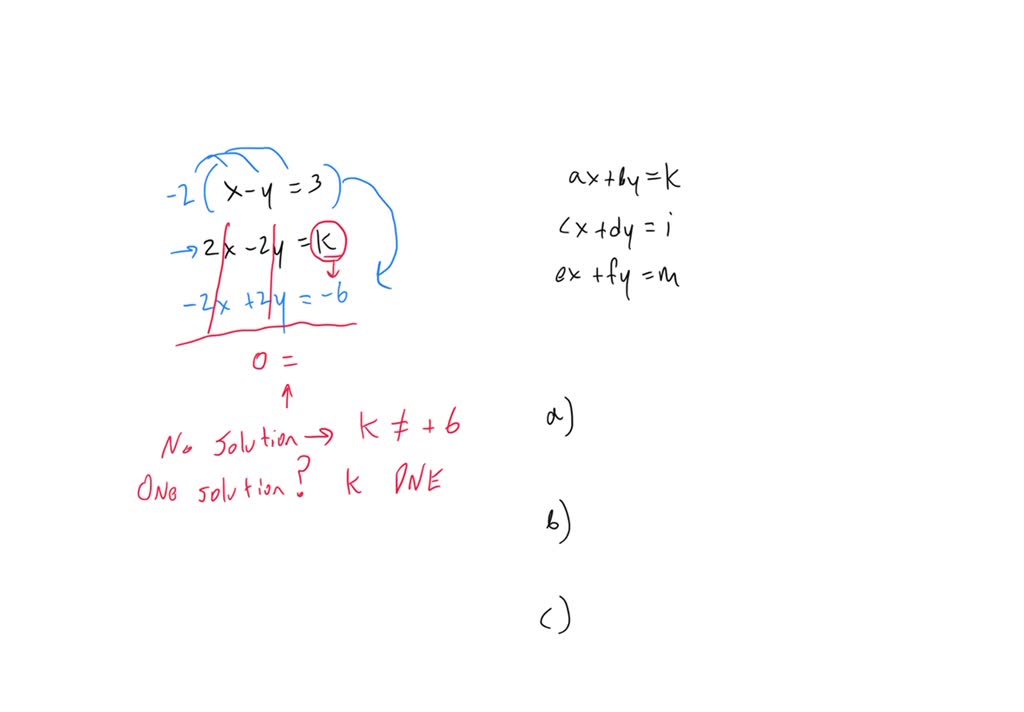 -2(x-y = 3)
→ 2x - 2y = k
-2x + 2y = -6
0 =
No solution → k ≠ + 6
One solution? k DNE
ax+by=k
cx+dy=i
ex+fy=m
a)
b)
c)